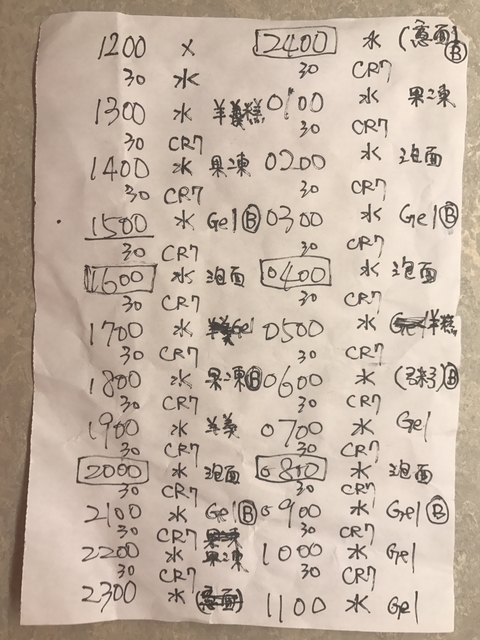 1200 x
30 水
1300 水 羊糕
30 CR7
1400 水 果凍
30 CR7
1500 水 Gel Ⓑ
30 CR7
1600 水 泡面
30 CR7
1700 水 Gel
30 CR7
1800 水 果凍 Ⓑ
30 CR7
1900 水 羊羹
30 CR7
2000 水 泡面
30 CR7
2100 水 Gel Ⓑ
30 CR7
2200 水 果凍
30 CR7
2300 水
2400 水 (意面) Ⓑ
30 CR7
0100 水 果凍
30 CR7
0200 水 泡面
30 CR7
0300 水 Gel Ⓑ
30 CR7
0400 水 泡面
30 CR7
0500 水 羊糕
30 CR7
0600 水 (粥) Ⓑ
30 CR7
0700 水 Gel
30 CR7
0800 水 泡面
30 CR7
0900 水 Gel Ⓑ
30 CR7
1000 水 Gel
30 CR7
1100 水 Gel